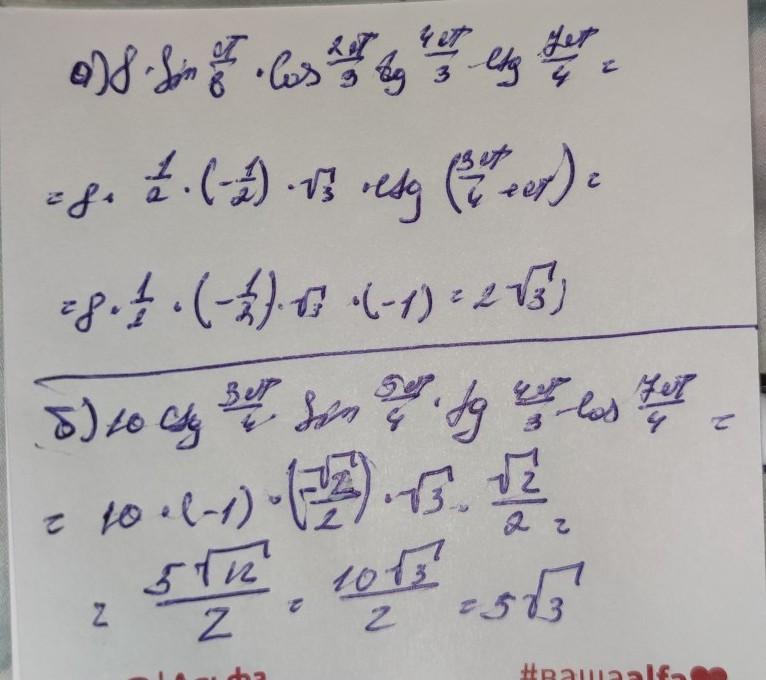 а) 8·sin π/6 · cos 2π/3 tg 4π/3 · ctg 7π/4 =
= 8 · 1/2 · (-1/2) · √3 · ctg (3π/4 + π) =
= 8 · 1/2 · (-1/2) · √3 · (-1) = 2√3;
б) 10 ctg 3π/4 · sin 5π/4 · tg 4π/3 · cos 7π/4 =
= 10 · (-1) · (-√2/2) · √3 · √2/2 =
= 5√12/2 = 10√3/2 = 5√3
#вашаalfa